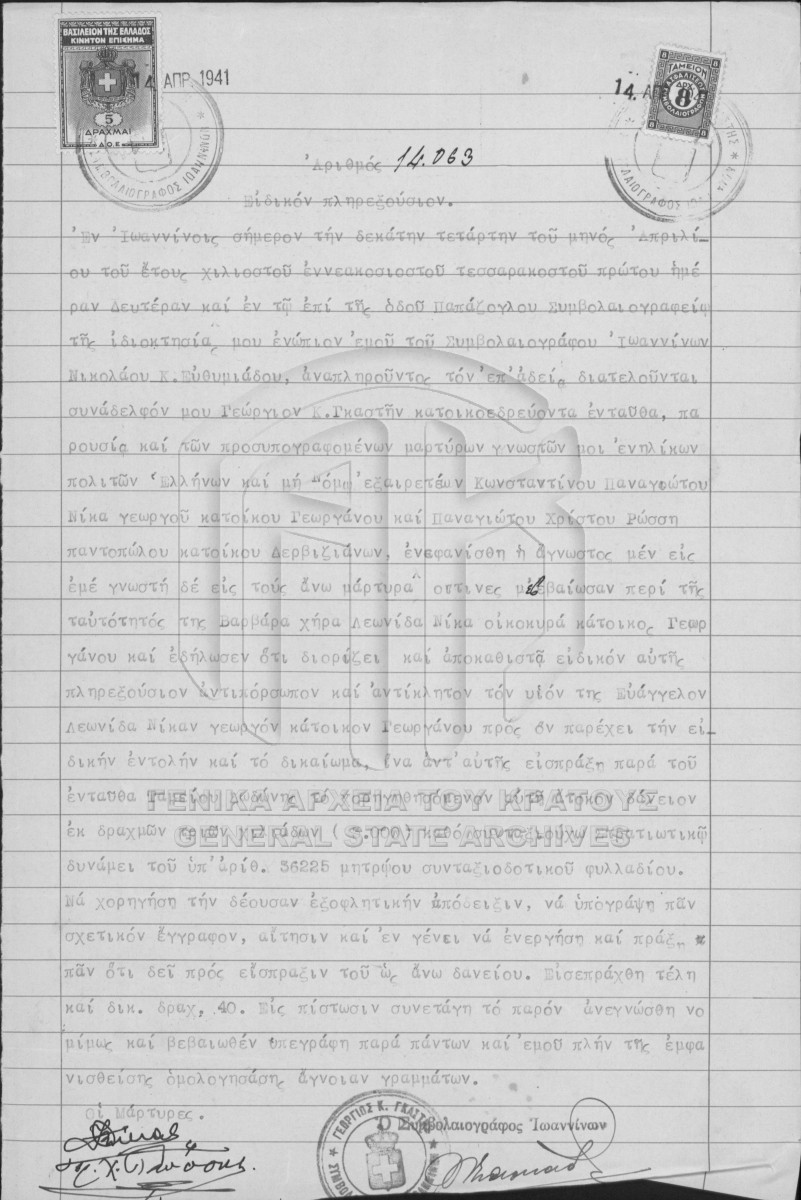 ΒΑΣΙΛΕΙΟΝ ΤΗΣ ΕΛΛΑΔΟΣ
ΚΙΝΗΤΟΝ ΕΠΙΣΗΜΑ
5
ΔΡΑΧΜΑΙ
Δ.Ο.Ε
14 ΑΠΡ. 1941
ΣΥΜΒΟΛΑΙΟΓΡΑΦΟΣ ΙΩΑΝΝΙΝΩΝ
14. ΑΠ
ΤΑΜΕΙΟΝ
ΔΡΧ
8
Ἀριθμός 14.063
Εἰδικόν πληρεξούσιον.
Ἐν Ἰωαννίνοις σήμερον τήν δεκάτην τετάρτην τοῦ μηνός Ἀπριλί-
ου τοῦ ἔτους χιλιοστοῦ ἐννεακοσιοστοῦ τεσσαρακοστοῦ πρώτου ἡμέ
ραν Δευτέραν καί ἐν τῷ ἐπί τῆς ὁδοῦ Παπάζογλου Συμβολαιογραφείῳ
τῆς ἰδιοκτησίας μου ἐνώπιον ἐμοῦ τοῦ Συμβολαιογράφου Ἰωαννίνων
Νικολάου Κ.Εὐθυμιάδου, ἀναπληροῦντος τόν ἐπ'ἀδείᾳ διατελοῦνται
συνάδελφόν μου Γεώργιον Κ.Γκαστῆν κατοικοεδρεύοντα ἐνταῦθα, πα
ρουσίᾳ καί τῶν προσυπογραφομένων μαρτύρων γνωστῶν μοι ἐνηλίκων
πολιτῶν Ἑλλήνων καί μή ὅμῳ ἐξαιρετέων Κωνσταντίνου Παναγιώτου
Νίκα γεωργοῦ κατοίκου Γεωργάνου καί Παναγιώτου Χρίστου Ρώσση
παντοπώλου κατοίκου Δερβιζιάνων, ἐνεφανίσθη ἡ ἄγνωστος μέν εἰς
ἐμέ γνωστή δέ εἰς τούς ἄνω μάρτυρας οιτινες μέ ἐβαίωσαν περί τῆς
ταὐτότητός της Βαρβάρα χήρα Λεωνίδα Νίκα οἰκοκυρά κάτοικος Γεωρ
γάνου καί ἐδήλωσεν ὅτι διορίζει καί ἀποκαθιστᾷ εἰδικόν αὐτῆς
πληρεξούσιον ἀντιπόρσωπον καί ἀντίκλητον τόν υἱόν της Εὐάγγελον
Λεωνίδα Νίκαν γεωργόν κάτοικον Γεωργάνου πρός ὅν παρέχει τήν εἰ-
δικήν ἐντολήν καί τό δικαίωμα, ἵνα ἀντ'αὐτῆς εἰσπράξη παρά τοῦ
ἐνταῦθα Ταμείου τό χορηγηθησόμενον αὐτῇ ἄτοκον δάνειον
ἐκ δραχμῶν τριῶν χιλιάδων ( 3.000) καθό συνταξιούχῳ στρατιωτικῷ
δυνάμει τοῦ ὑπ'ἀρίθ. 36225 μητρῴου συνταξιοδοτικοῦ φυλλαδίου.
Νά χορηγήση τήν δέουσαν ἐξοφλητικήν ἀπόδειξιν, νά ὑπογράψη πᾶν
σχετικόν ἔγγραφον, αἴτησιν καί ἐν γένει νά ἐνεργήση καί πράξῃ
πᾶν ὅτι δεῖ πρός εἴσπραξιν τοῦ ὡς ἄνω δανείου. Εἰσεπράχθη τέλη
καί δικ. δραχ, 40. Εἰς πίστωσιν συνετάγη τό παρόν ἀνεγνώσθη νο
μίμως καί βεβαιωθέν ὑπεγράφη παρά πάντων καί ἐμοῦ πλήν τῆς ἐμφα
νισθείσης ὁμολογησάσης ἄγνοιαν γραμμάτων.
Οἱ Μάρτυρες.
Ὁ Συμβολαιογράφος Ἰωαννίνων
ΓΕΩΡΓΙΟΣ Κ. ΓΚΑΣΤΗΣ
ΓΕΝΙΚΑ ΑΡΧΕΙΑ ΤΟΥ ΚΡΑΤΟΥΣ
GENERAL STATE ARCHIVES